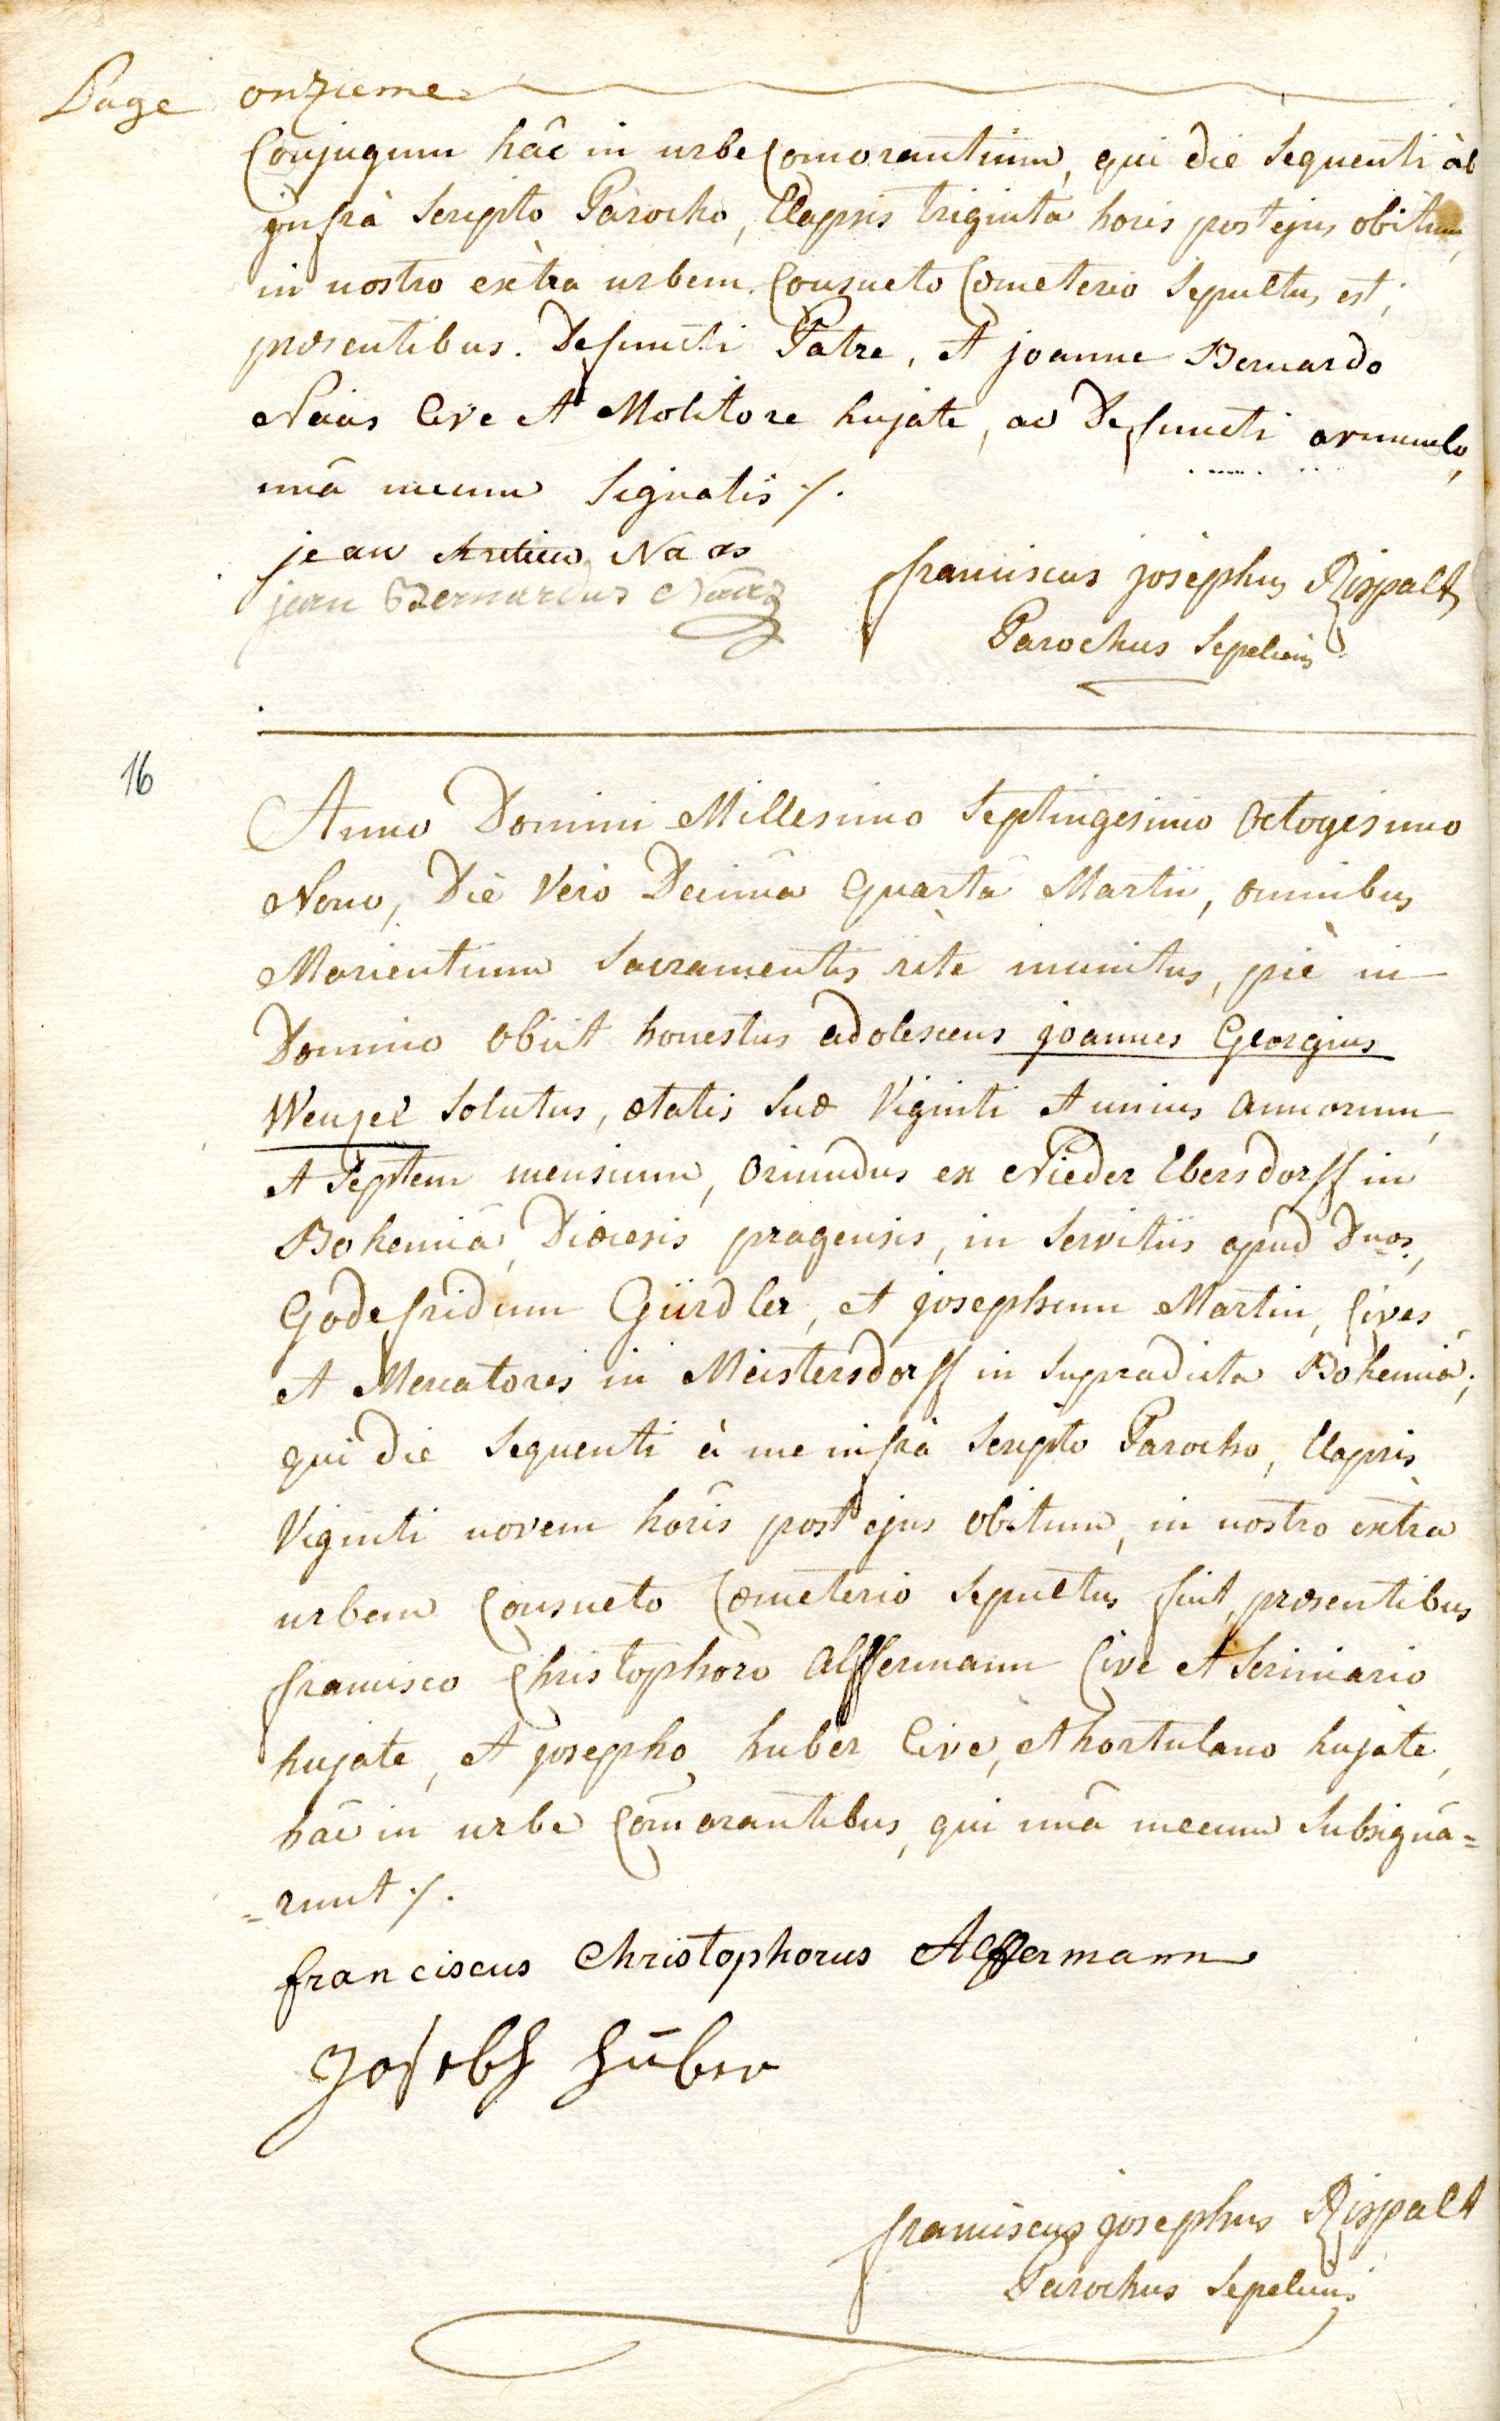 Page onzieme
Conjugum hâc in urbe Comorantium, qui die sequenti àb
jnfrà scripto Parocho, Elapsis triginta horis post ejus obitum,
in nostro extra urbem Consueto Cœmeterio Sepultus est;
præsentibus. Defuncti Patre, et joanne Bernardo
Naas Cive et Molitore hujate, ac Defuncti avunculo,
unâ mecum Signatis ·/.
jean Naas
jean Bernardus Naas
franciscus josephus Rispalt
Parochus Sepeliens
16
Anno Domini Millesimo Septingesimo Octogesimo
Nono, Diè Vero Decimâ Quartâ Martii, omnibus
Morientium Sacramentis ritè munitus, piè in
Domino obiit honestus adolescens joannes Georgius
Wenzel Solutus, ætatis Suæ Viginti et unius annorum,
et Septem mensium, oriundus ex Nieder Ebersdorff in
Bohemiâ, Diœcesis pragensis, in Servitiis apud Dnos,
Godefridum Gürdler, et josephum Martin, Cives
et Mercatores in Meistersdorff in Supradicta Bohemiâ;
qui die Sequenti à me infrà Scripto Parocho, Elapsis
Viginti novem horis post ejus obitum, in nostro extra
urbem Consueto Cœmeterio Sepultus fuit, præsentibus
francisco Christophoro Alffermann Cive et Scriniario
hujate, et josepho huber Cive, et hortulano hujate,
hâc in urbe Com̄orantibus, qui unâ mecum Subsignâ=
=runt ·/.
franciscus Christophorus Alffermann
Joseph Hūber
franciscus josephus Rispalt
Parochus Sepeliens